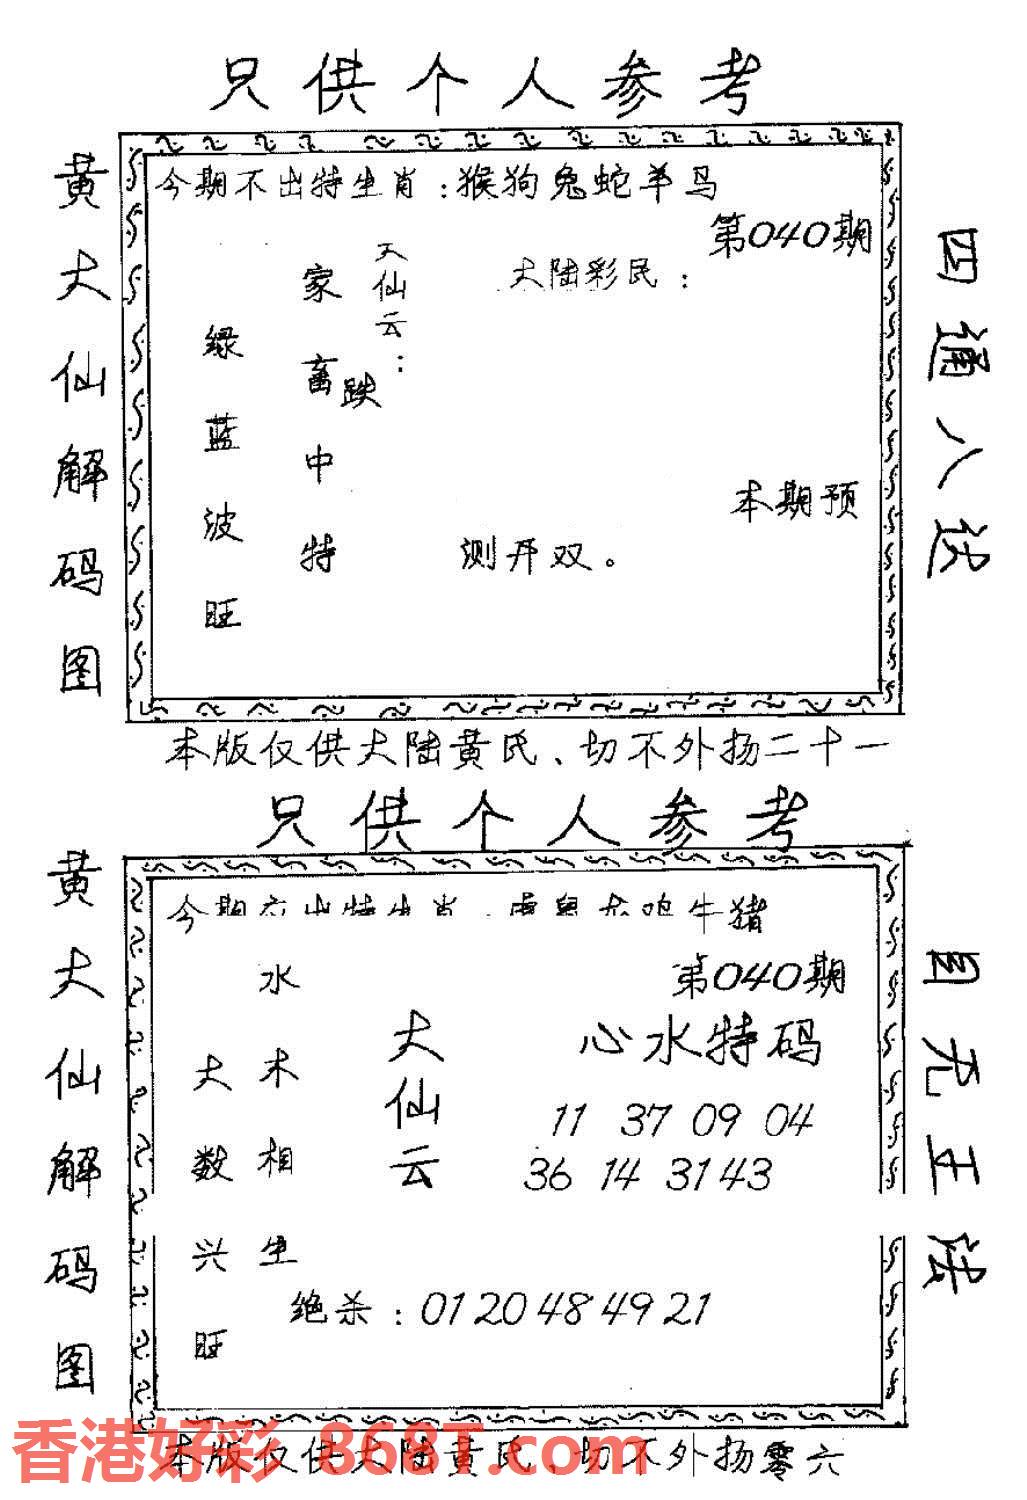 只供个人参考
黄大仙解码图
今期不出特生肖：猴狗兔蛇羊马
第040期
大仙云：
大陆彩民：
家畜中特
跌
绿蓝波旺
本期预
测开双。
四通八达
本版仅供大陆黄民、切不外扬二十一
只供个人参考
黄大仙解码图
今期 出特生肖 虎鼠龙鸡牛猪
第040期
水木相生
大数兴旺
大仙云
心水特码
11 37 09 04
36 14 31 43
绝杀：01 20 48 49 21
目无王法
本版仅供大陆黄民、切不外扬零六
香港好彩 868T.com